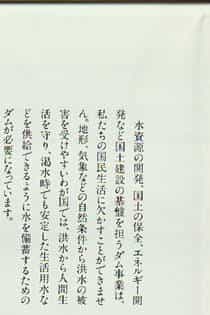 水資源の開発、国土の保全、エネルギー開
発など国土建設の基盤を担うダム事業は、
私たちの国民生活に欠かすことができませ
ん。地形、気象などの自然条件から洪水の被
害を受けやすいわが国では、洪水から人間生
活を守り、渇水時でも安定した生活用水な
どを供給できるように水を備蓄するための
ダムが必要になっています。